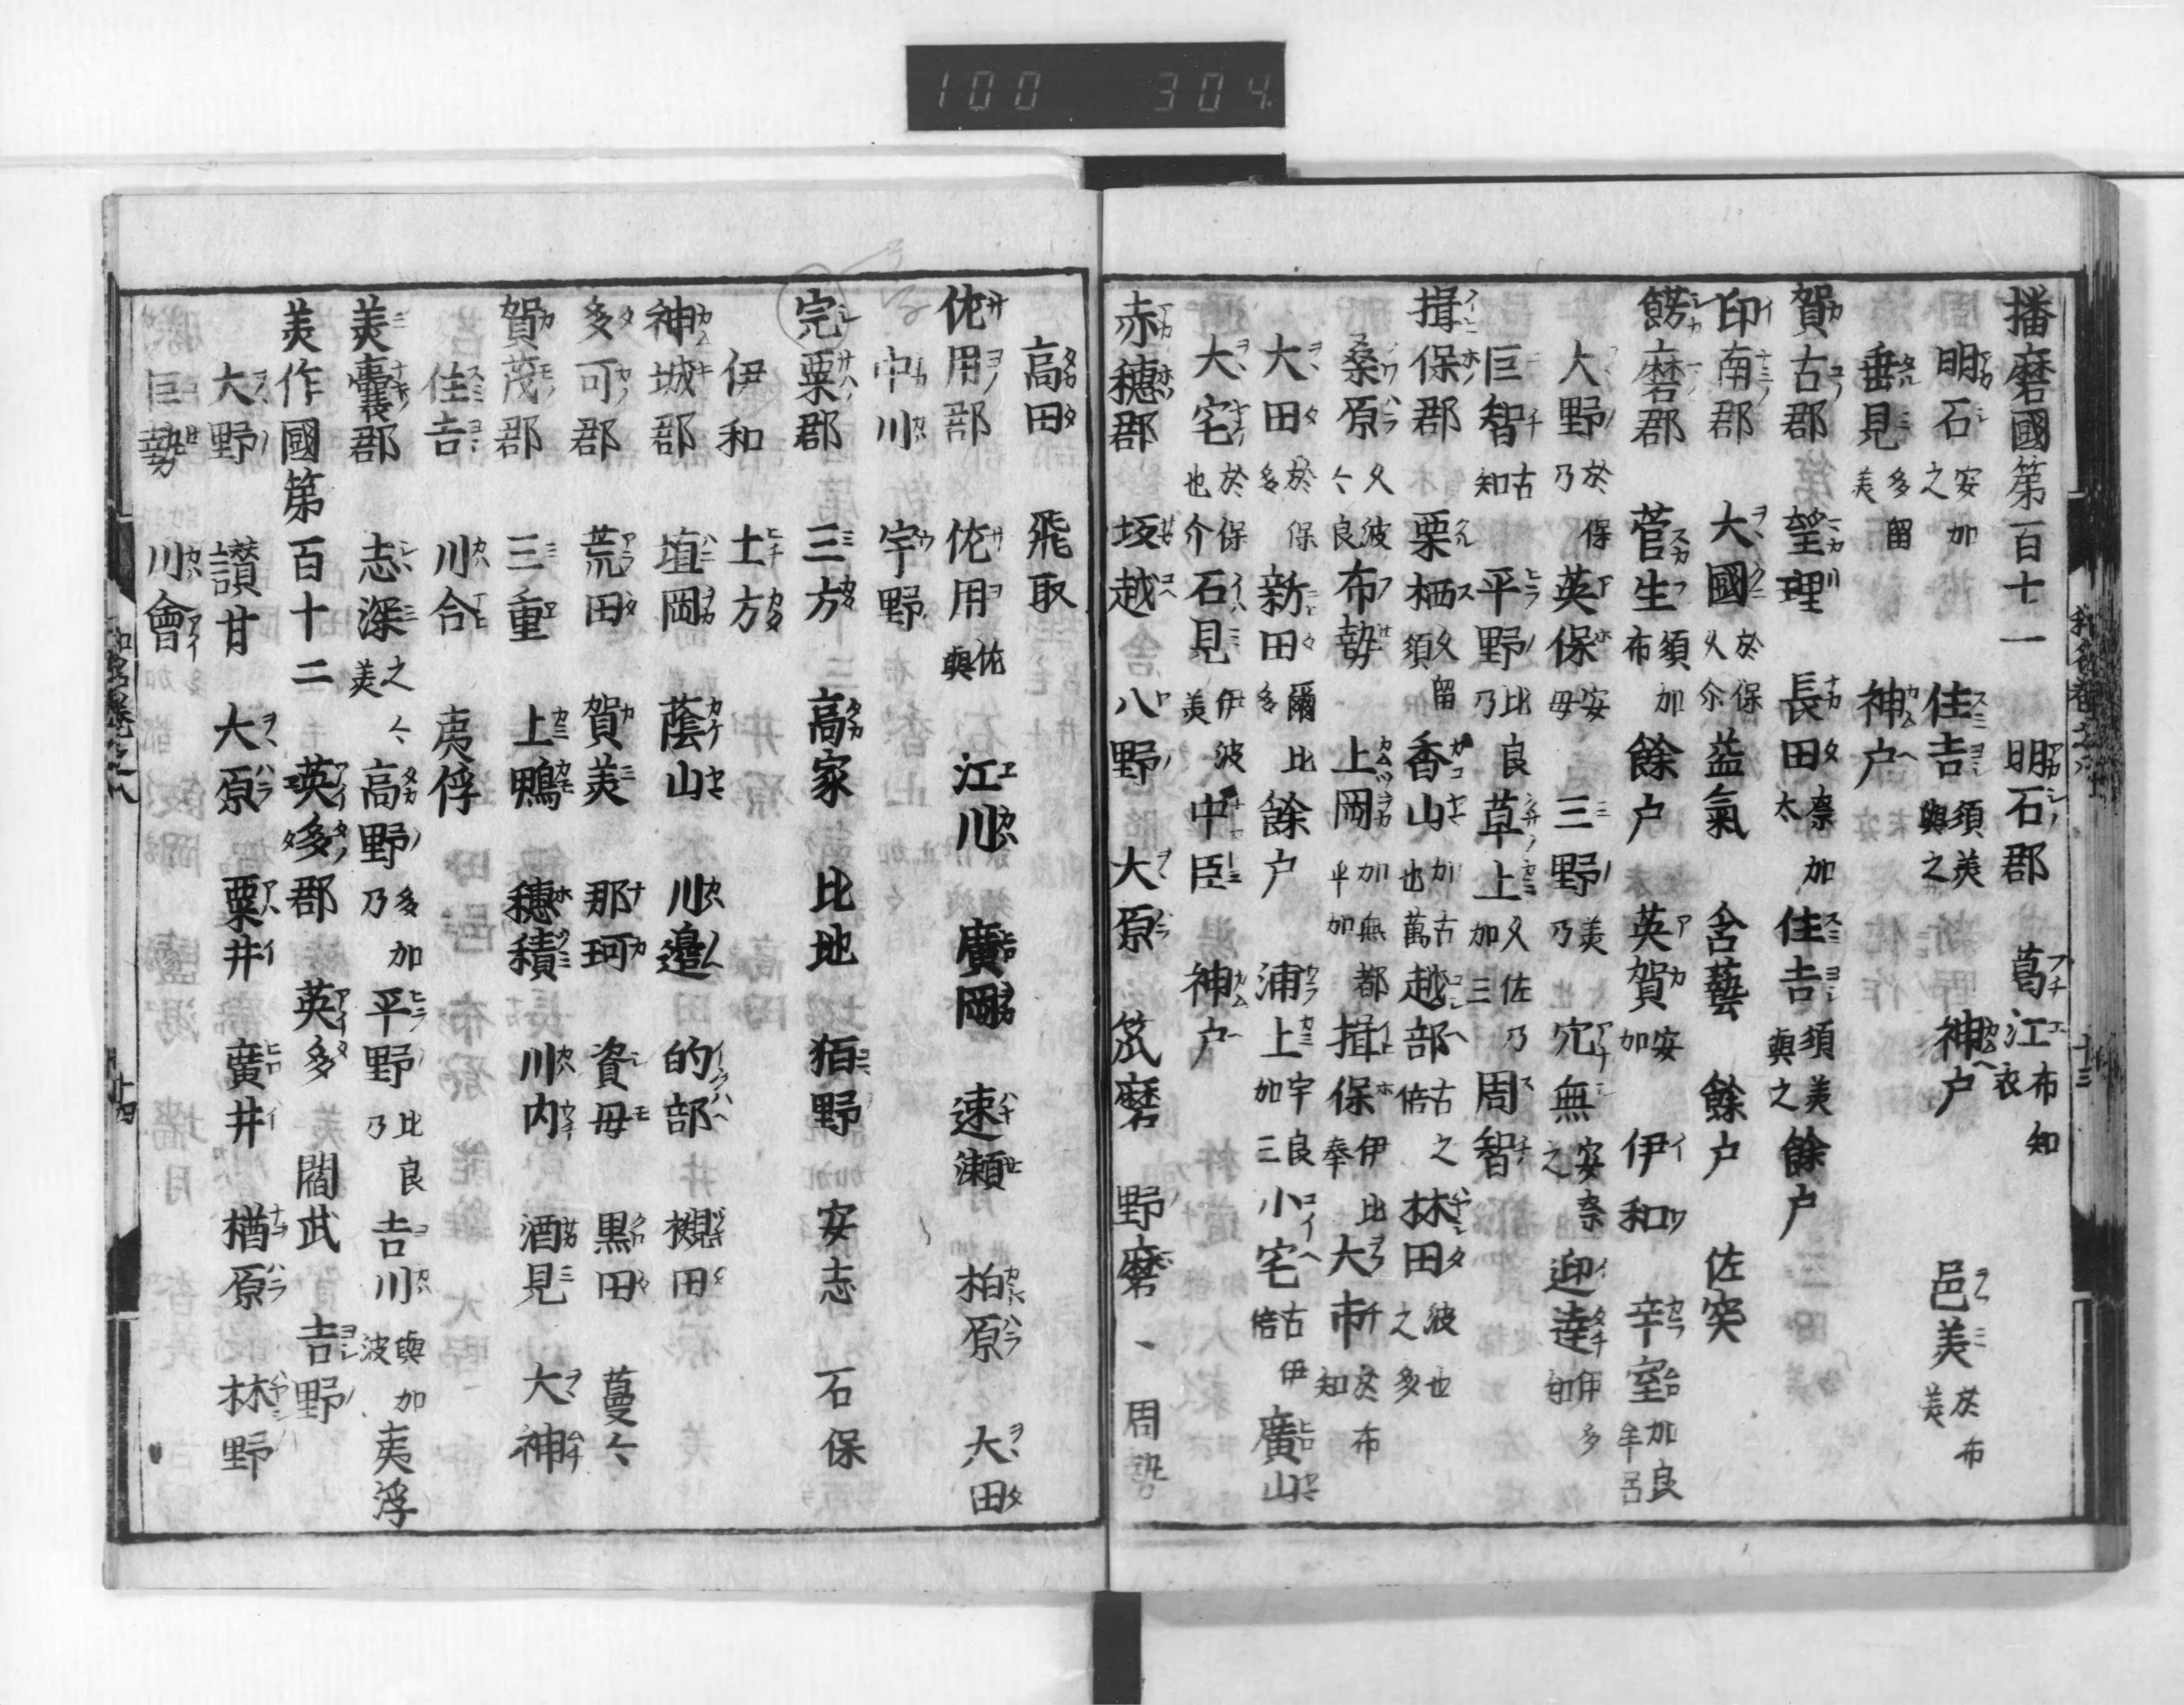 100 304
播磨國第百十一
明石郡 葛江布知衣
明石安加之 住吉須美與之 神户 邑美於布美
垂見多留美 神户
賀古郡 望理 長田奈加太 住吉須美與之 餘户
印南郡 大國於保久尒 益氣 含藝 餘户 佐突
餝磨郡 菅生須加布 餘户 英賀安加 伊和 辛室加良牟呂
大野於保乃 英保安母 三野美乃 穴無安奈之 迎達伊多知
巨智古知 平野比良乃 草上久佐乃加三 周智
揖保郡 栗栖久留須 香山加古也萬 越部古之倍 林田波也之多
桑原久波良 布勢 上岡加無都乎加 揖保伊比奉 大市於布知
大田於保多 新田爾比多 餘户 浦上宇良加三 小宅古伊倍 廣山
大宅於保也介 石見伊波美 中臣 神户
赤穗郡 坂越 八野 大原 筑磨 野磨 周勢
高田 飛取
佐用郡 佐用佐與 江川 廣岡 速瀬 柏原 大田
中川 宇野
完粟郡 三方 高家 比地 狛野 安志 石保
伊和 土方
神埼郡 埴岡 蔭山 川邉 的部 槻田
多可郡 荒田 賀美 那珂 資母 黒田 蔓々
賀茂郡 三重 上鴨 穗積 川内 酒見 大神
住吉 川合 夷俘
美嚢郡 志深之々美 高野多加乃 平野比良乃 吉川與加波 夷浮
美作國第百十二
英多郡 英多 閻武 吉野
大野 讃甘 大原 粟井 廣井 楢原 林野
巨勢 川會